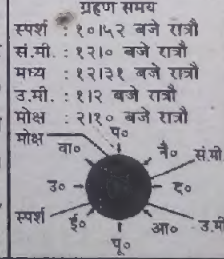 ग्रहण समय
स्पर्श : १०।५२ बजे रात्रौ
सं.मी. : १२।० बजे रात्रौ
मध्य : १२।३१ बजे रात्रौ
उ.मी. : १।२ बजे रात्रौ
मोक्ष : २।१० बजे रात्रौ
मोक्ष
प०
वा०
नै०
सं.मी
उ०
द०
स्पर्श
ई०
आ०
उ.मी
पू०